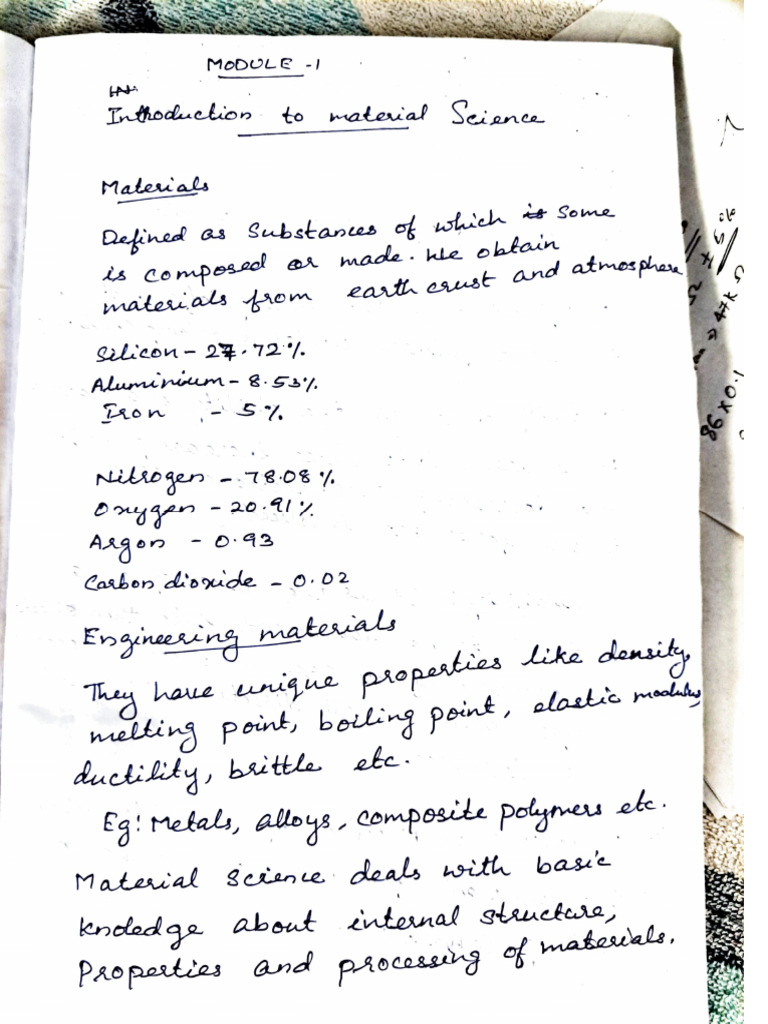 MODULE -1
Introduction to material Science
Materials
Defined as Substances of which is some
is composed or made. We obtain
materials from earth crust and atmosphere
Silicon - 27.72%.
Aluminium - 8.53%.
Iron - 5%.
Nitrogen - 78.08%.
Oxygen - 20.91%.
Argon - 0.93
Carbon dioxide - 0.02
Engineering materials
They have unique properties like density,
melting point, boiling point, elastic modulus,
ductility, brittle etc.
Eg: Metals, alloys, composite polymers etc.
Material science deals with basic
knoledge about internal structure,
Properties and processing of materials.
86 x 0.1